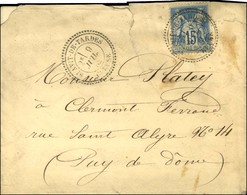 DE-TARDES
9
JUIL
15
Monsieur Flatey
à Clermont Ferrand
rue Saint Alyre No 14
Puy de dôme